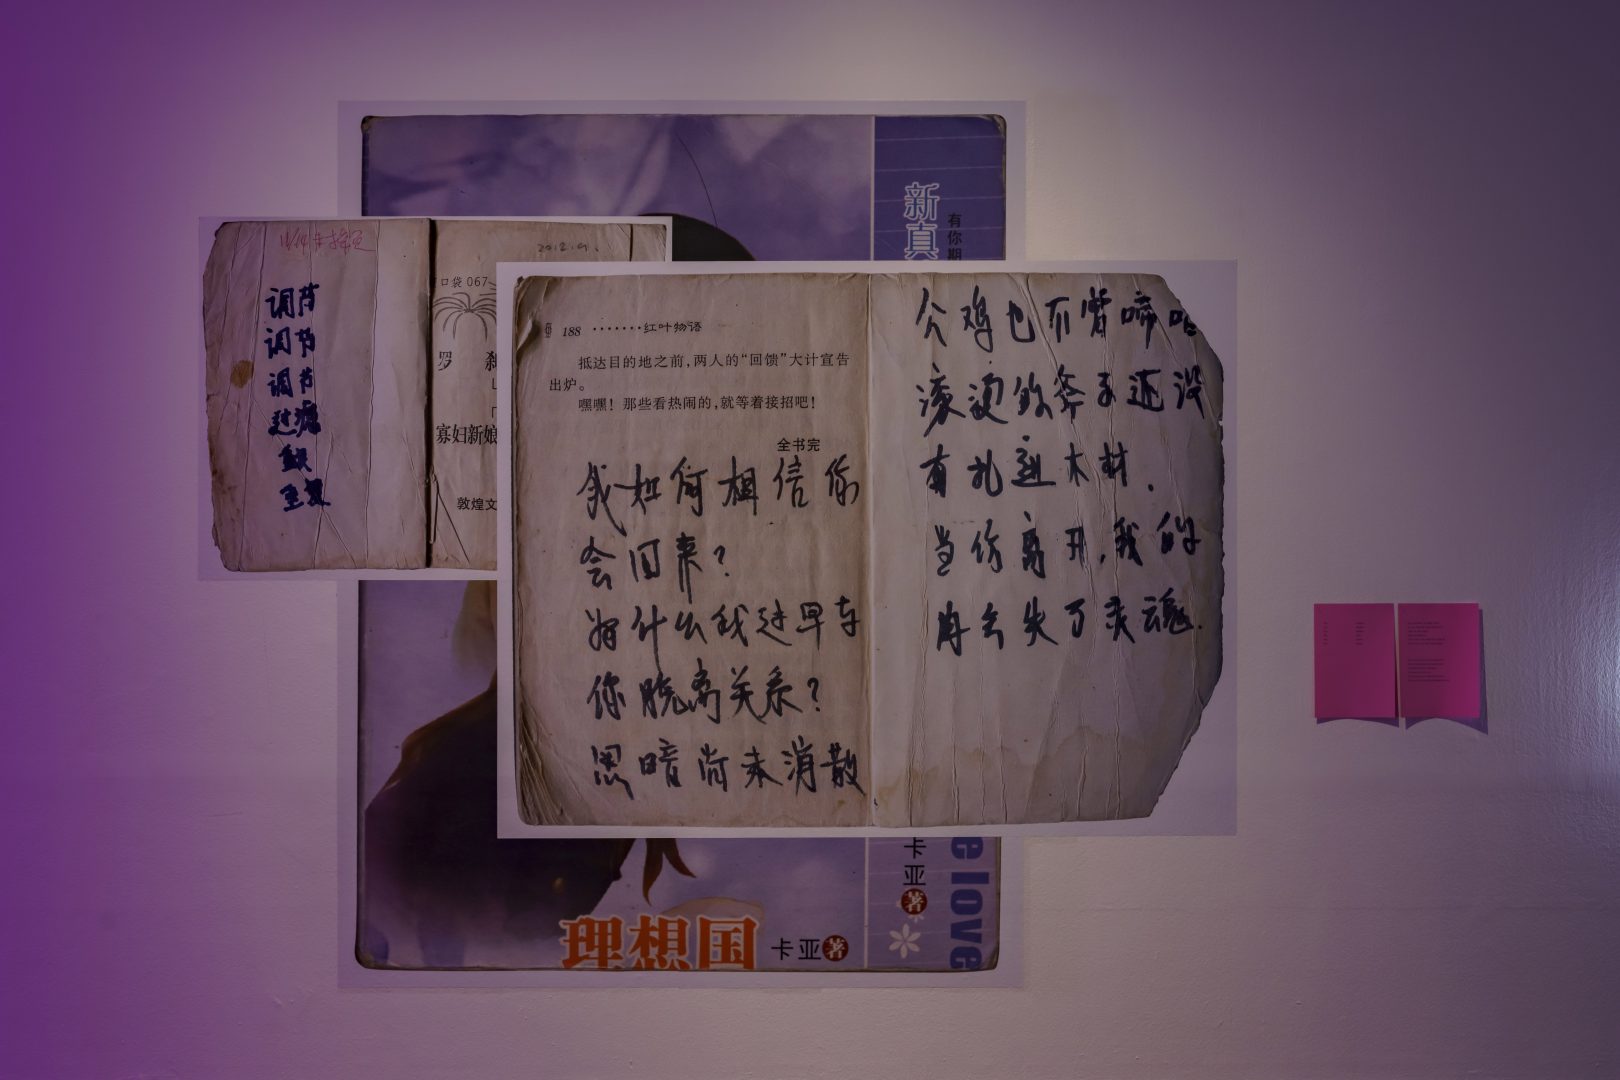 新真
有你期
调节
调节
调节
过瘾
重复
2012.9.
口袋 067
罗 刹
寡妇新娘
敦煌文
188 ·······红叶物语
抵达目的地之前，两人的“回馈”大计宣告
出炉。
嘿嘿！那些看热闹的，就等着接招吧！
全书完
我如何相信你
会回来？
为什么我过早与
你脱离关系？
黑暗尚未消散
公鸡也不曾啼鸣
滚烫的斧子还没
有扎进木材.
当你离开，我的
身会失了灵魂.
卡亚著
e love
理想国
卡亚著